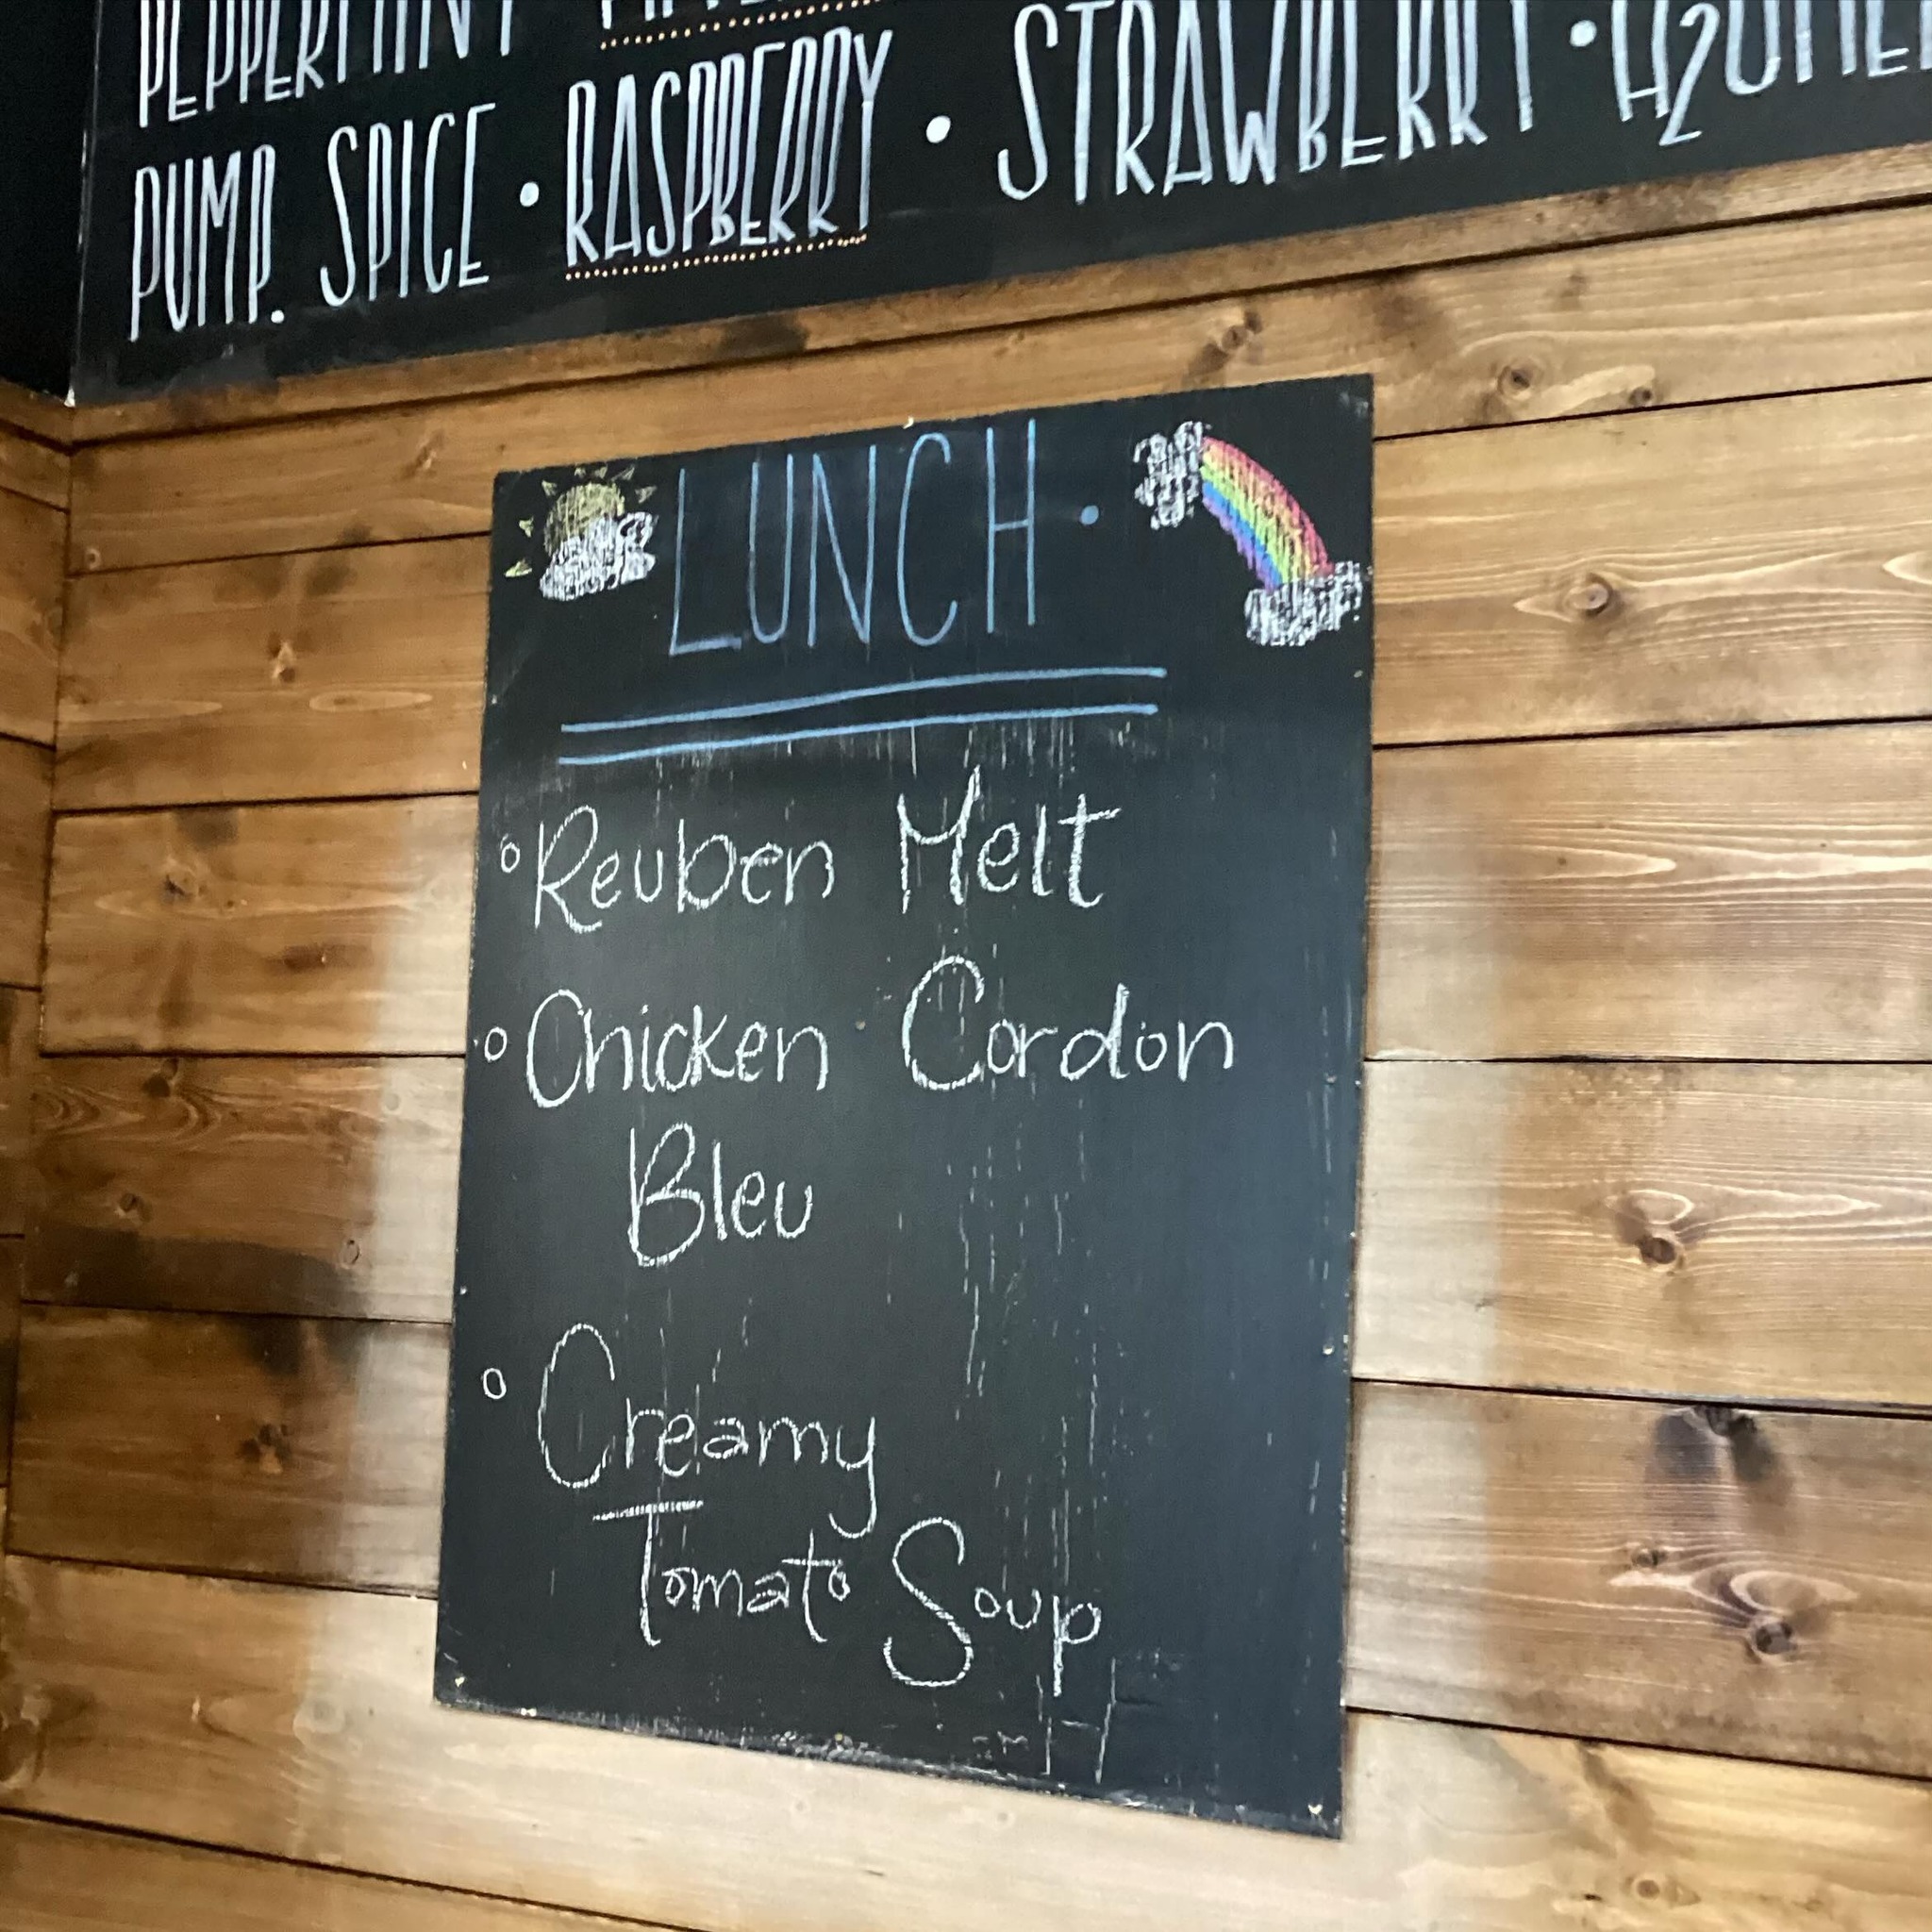 PEPPERMINT
PUMP. SPICE • RASPBERRY • STRAWBERRY •
LUNCH •
Reuben Melt
Chicken Cordon
Bleu
Creamy
Tomato Soup